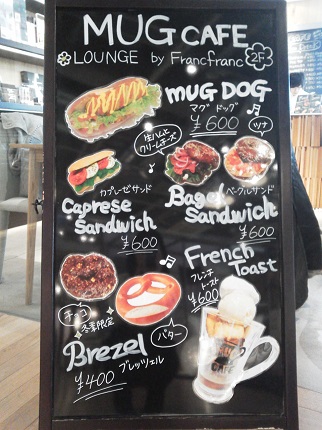 MUG CAFE
LOUNGE by Francfranc 2F
MUG DOG
マグ ドッグ
¥600
生ハムと
クリームチーズ
ツナ
カプレーゼサンド
Caprese
Sandwich
¥600
ベーグルサンド
Bagel
Sandwich
¥600
French
Toast
フレンチ
トースト
¥600
チョコ
冬季限定
バター
Brezel
¥400 ブレッツェル